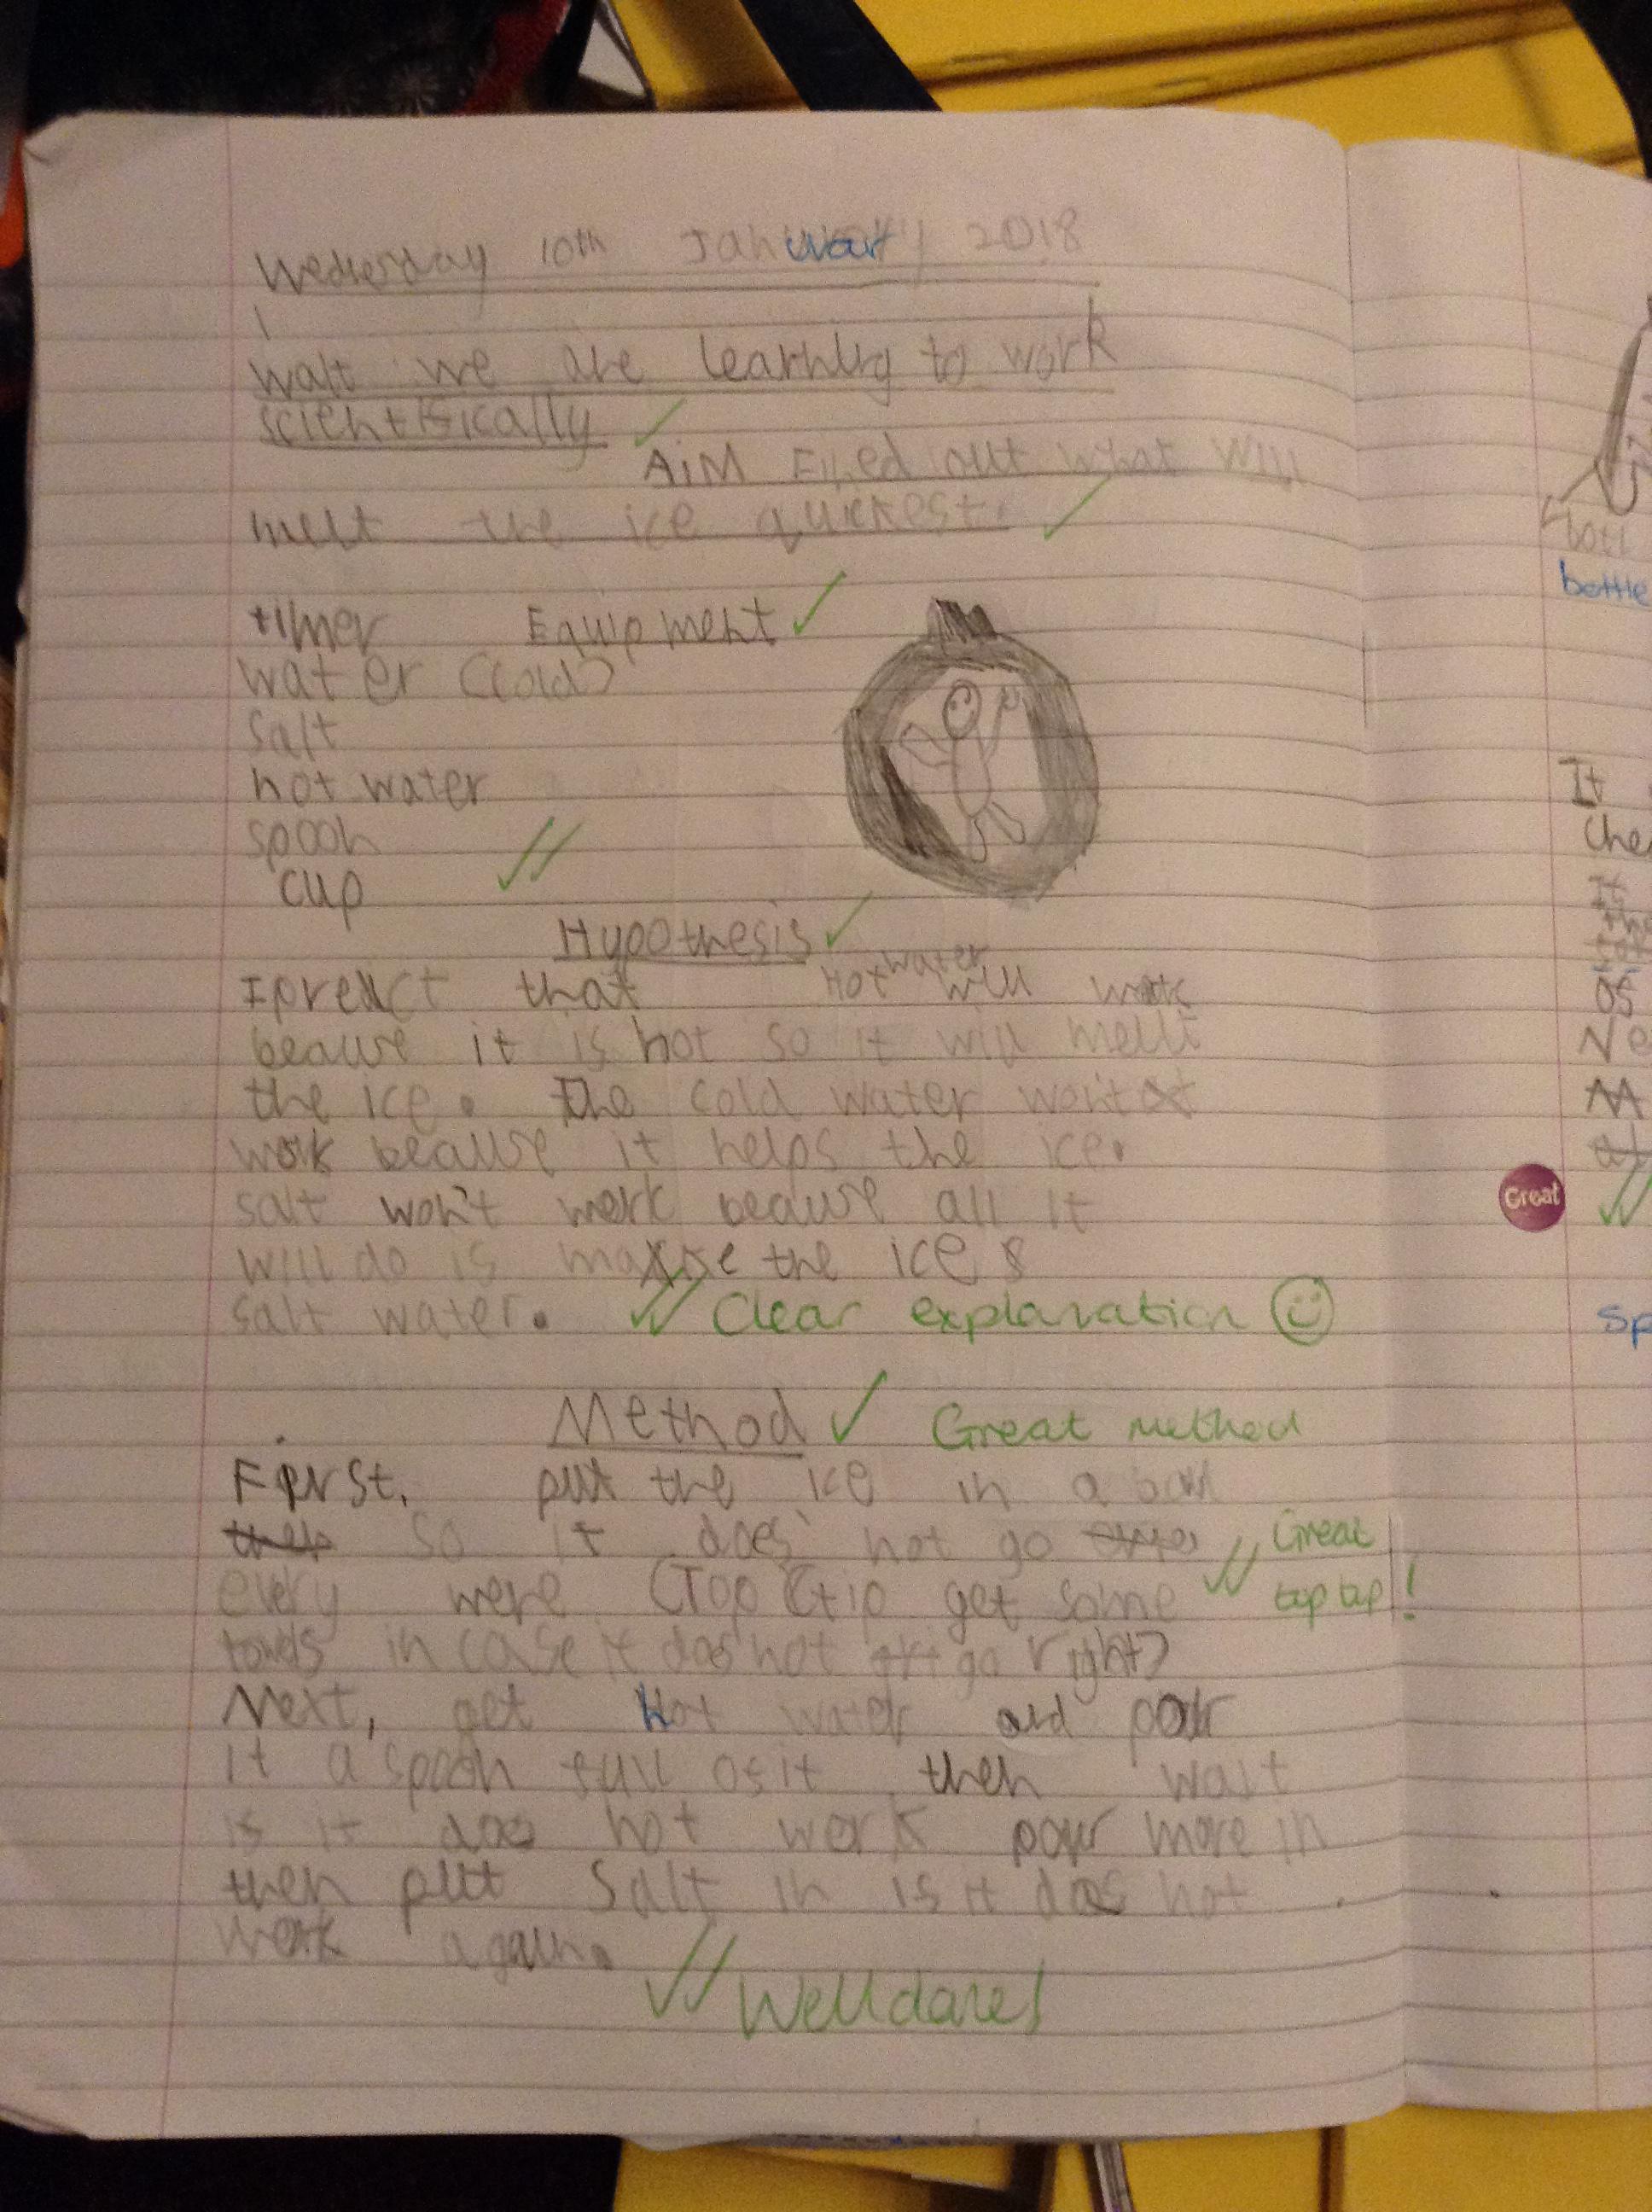 Wednesday 10th January 2018
walt we are learning to work
scientifically
AiM Fined out what will
melt the ice quickest.
timer Equipment
water (cold)
salt
hot water
spoon
cup
Hypothesis
I predict that Hot water will work
beause it is hot so it will melt
the ice. The cold water won't
work beause it helps the ice.
salt won't work beause all it
will do is make the ice
salt water. Clear explanation
Method Great method
First, put the ice in a
so it does not go
every were (Top tip get some Great top tip!
towls in case it does not go right)
Next, get Hot water and pour
it a spoon full of it then wait
if it does not work pour more in
then put salt in if it does not
work again.
Well done!
bottle
It
Great